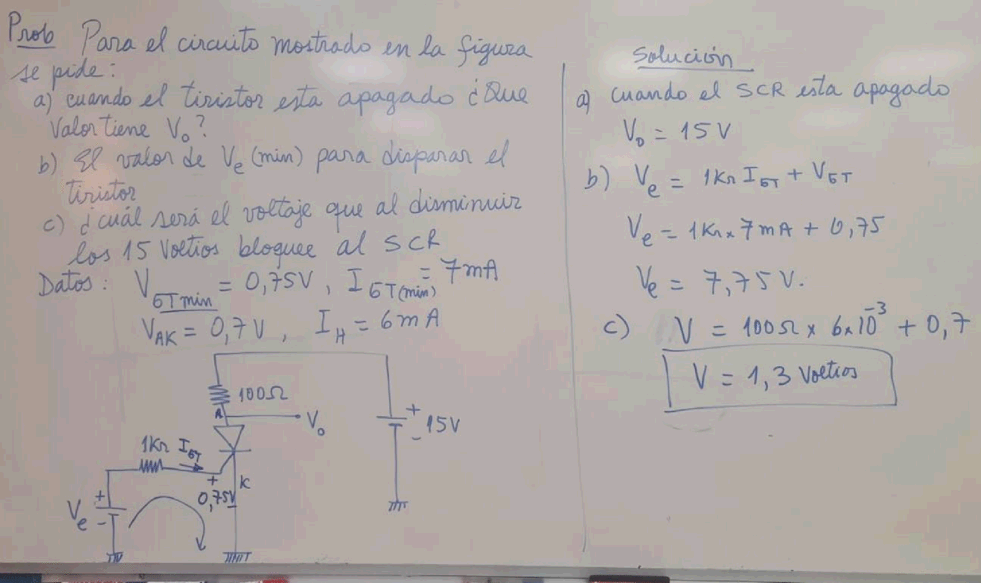 Prob Para el circuito mostrado en la figura
se pide:
a) cuando el tiristor esta apagado ¿Que
Valor tiene V₀?
b) El valor de Ve (min) para disparar el
tiristor
c) ¿cuál será el voltaje que al disminuir
los 15 Voltios bloquee al SCR
Datos: V_GT min = 0,75V, I_GT(min) = 7mA
V_AK = 0,7V, I_H = 6mA
100Ω
A
V₀
+
-
15V
1KΩ
I_GT
+
0,75V
-
K
Ve
+
-
Solución
a) cuando el SCR esta apagado
V₀ = 15V
b) Ve = 1KΩ I_GT + V_GT
Ve = 1KΩ x 7mA + 0,75
Ve = 7,75V.
c) V = 100Ω x 6x10⁻³ + 0,7
V = 1,3 Voltios